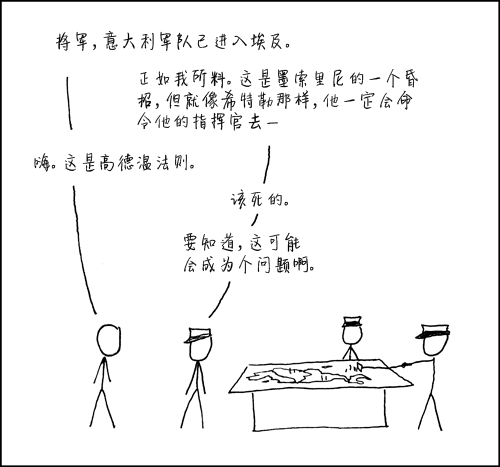 将军,意大利军队已进入埃及。
正如我所料。这是墨索里尼的一个昏
招,但就像希特勒那样,他一定会命
令他的指挥官去—
嗨。这是高德温法则。
该死的。
要知道,这可能
会成为个问题啊。